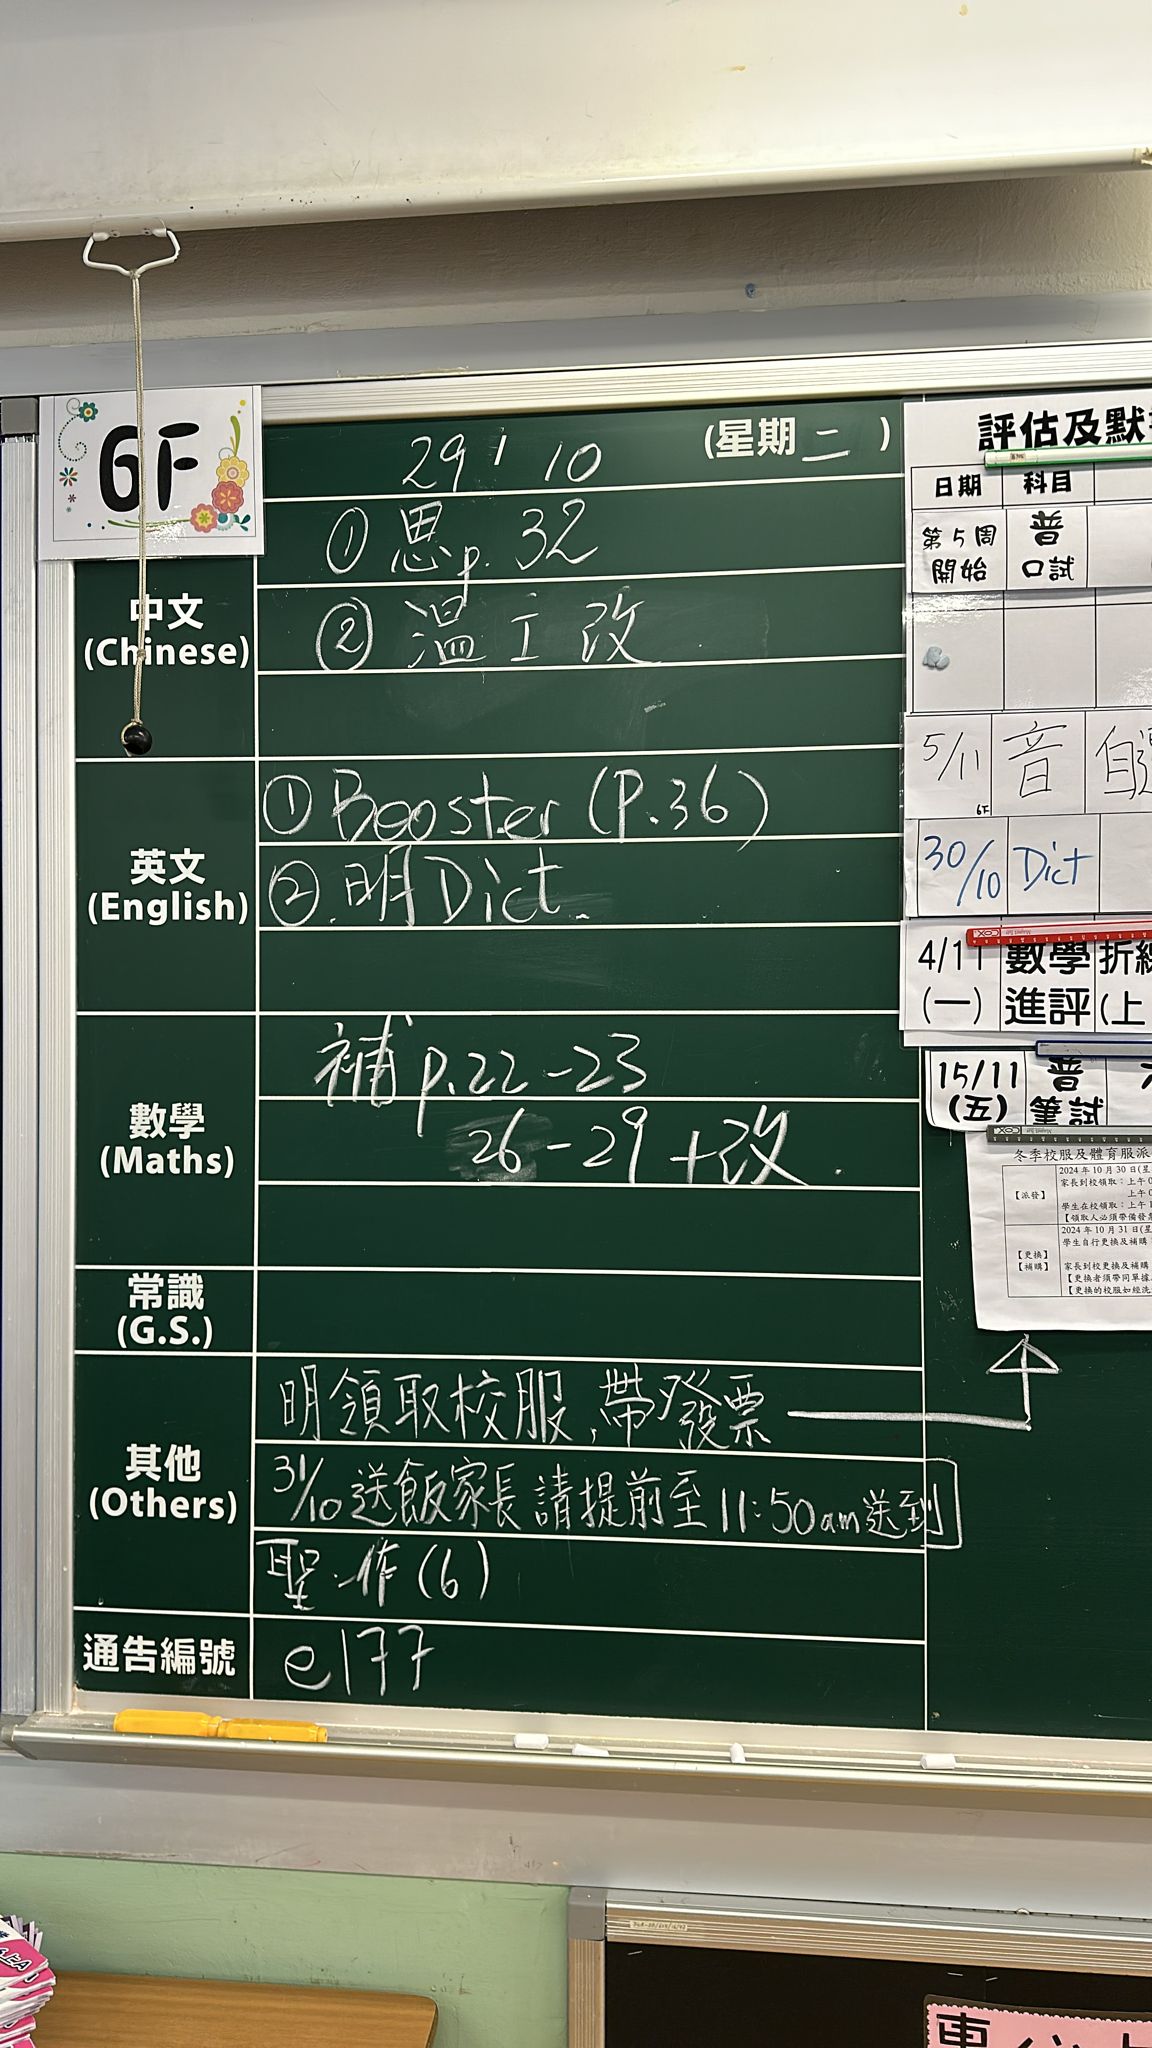 6F
29 / 10 (星期二)
中文
(Chinese)
① 思 p. 32
② 溫工改
英文
(English)
① Booster (P.36)
② 明 Dict.
數學
(Maths)
補 p.22-23
26-29 +改.
常識
(G.S.)
其他
(Others)
明領取校服,帶發票
31/10 送飯家長請提前至11:50am送到
聖.作(6)
通告編號
e177
評估及默
日期 科目
第5周
開始
普
口試
5/11 音 自
6F
30/10 Dict
4/11
(一)
數學
進評
折線
(上
15/11
(五)
普
筆試
冬季校服及體育服派
【派發】
2024年10月30日(星
家長到校領取:上午
上午
學生在校領取:上午
【領取人必須帶備發票
【更換】
【補購】
2024年10月31日(星
學生自行更換及補購
家長到校更換及補購
【更換者須帶同單據
【更換的校服如經洗